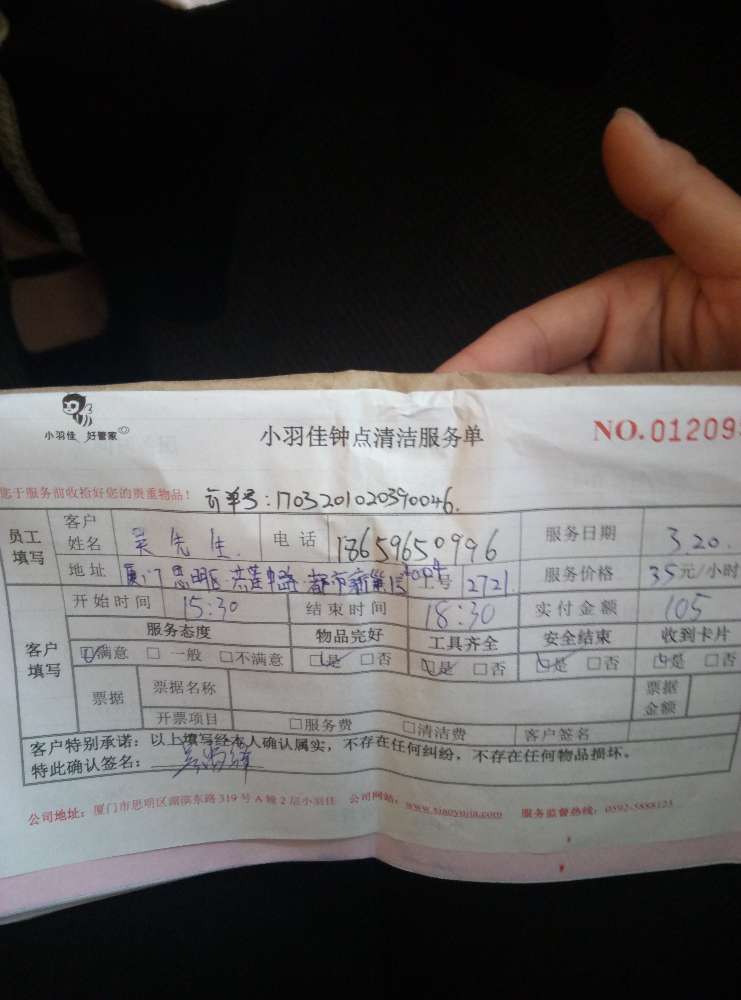 小羽佳 好管家
小羽佳钟点清洁服务单
NO.01209
您于服务前收拾好您的贵重物品！ 订单号：1703201020390046.
员工填写 客户姓名 吴先生 电话 18659650996 服务日期 3.20.
地址 厦门思明区 莲 中路 都市新 2004 工号 2721 服务价格 35元/小时
开始时间 15:30 结束时间 18:30 实付金额 105
客户填写 服务态度 物品完好 工具齐全 安全结束 收到卡片
☑满意 □一般 □不满意 ☑是 □否 ☑是 □否 ☑是 □否 ☑是 □否
票据 票据名称 票据金额
开票项目 □服务费 □清洁费 客户签名
客户特别承诺：以上填写经本人确认属实，不存在任何纠纷，不存在任何物品损坏。
特此确认签名： 吴
公司地址：厦门市思明区湖滨东路319号A幢2层小羽佳 公司网站：www.xiaoyujia.com 服务监督热线：0592-5888123